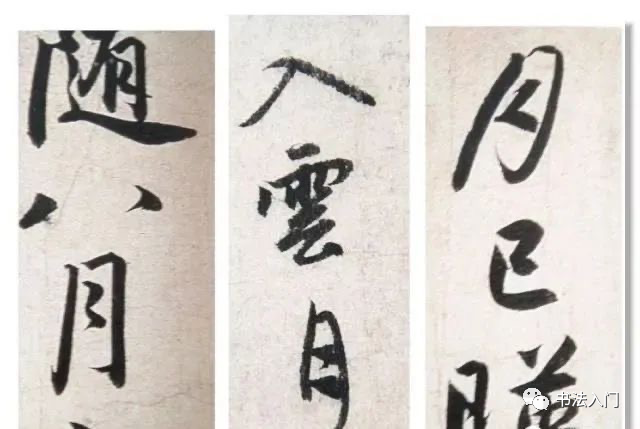 随八月
入雲月
月已
书法入门